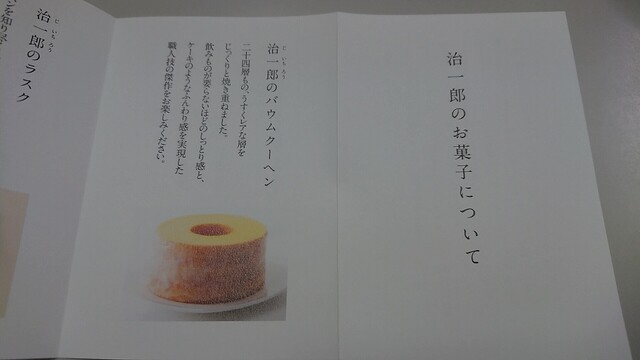 治一郎のお菓子について
じ いち ろう
治一郎のバウムクーヘン
二十四層もの、うすくピアな層を
じっくりと焼き重ねました。
飲みものが要らないほどのしっとり感と、
ケーキのようなふんわり感を実現した
職人技の傑作をお楽しみください。
じ いち ろう
治一郎のラスク